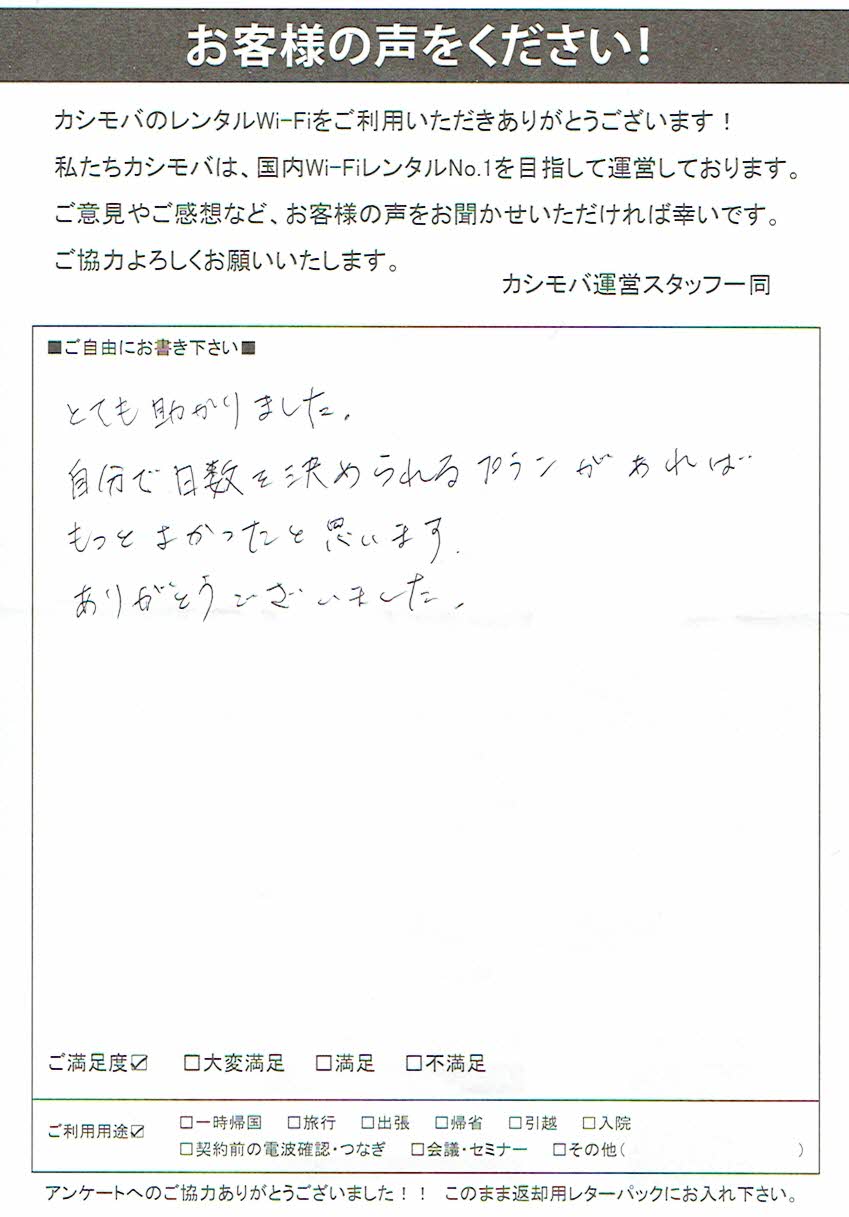 お客様の声をください!
カシモバのレンタルWi-Fiをご利用いただきありがとうございます!
私たちカシモバは、国内Wi-FiレンタルNo.1を目指して運営しております。
ご意見やご感想など、お客様の声をお聞かせいただければ幸いです。
ご協力よろしくお願いいたします。
カシモバ運営スタッフ一同
■ご自由にお書き下さい■
とても助かりました。
自分で日数を決められるプランがあれば
もっとよかったと思います。
ありがとうございました。
ご満足度☑ □大変満足 □満足 □不満足
ご利用用途☑ □一時帰国 □旅行 □出張 □帰省 □引越 □入院
□契約前の電波確認・つなぎ □会議・セミナー □その他( )
アンケートへのご協力ありがとうございました!! このまま返却用レターパックにお入れ下さい。